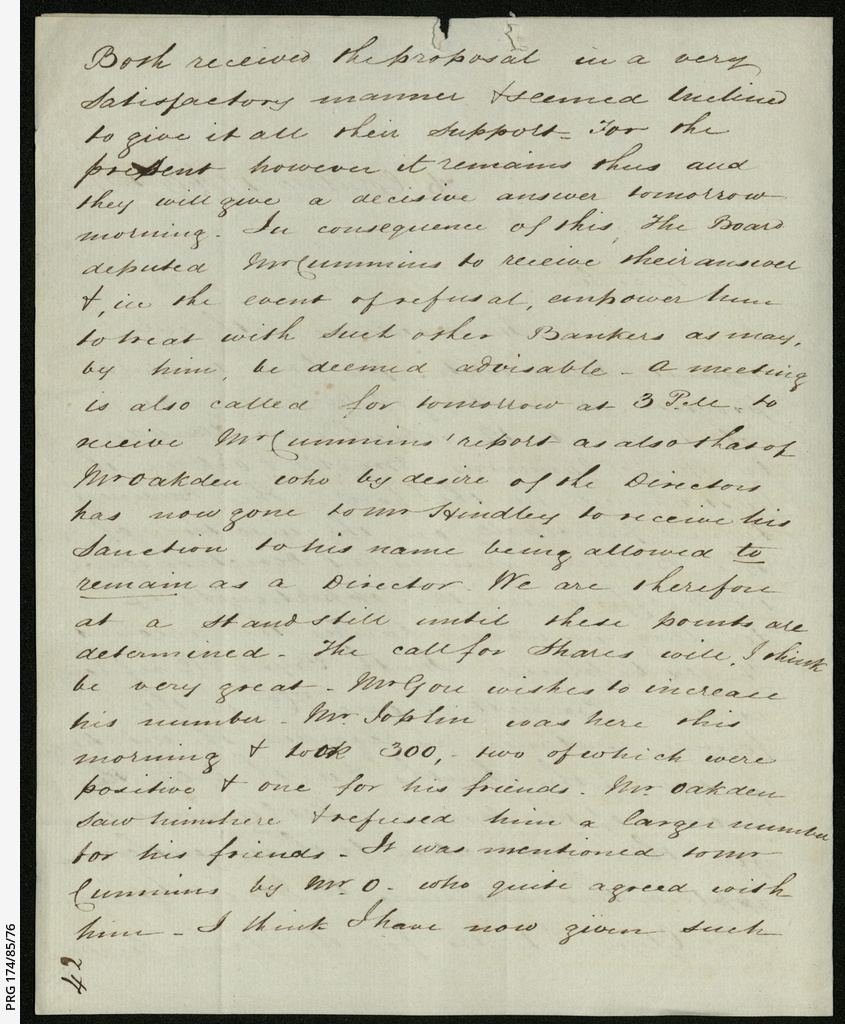 Both received the proposal in a very
satisfactory manner & seemed inclined
to give it all their support - For the
present however it remains thus and
they will give a decisive answer tomorrow
morning. In consequence of this, The Board
deputed Mr Cummins to receive their answer
&, in the event of refusal, empower him
to treat with such other Bankers as may,
by him, be deemed advisable - A meeting
is also called for tomorrow at 3 P.M. to
receive Mr Cummins' report as also that of
Mr Oakden who by desire of the Directors
has now gone to Mr Hindley to receive his
Sanction to his name being allowed to
remain as a Director. We are therefore
at a stand still until these points are
determined - The call for Shares will, I think
be very great - Mr Gou wishes to increase
his number - Mr Joplin was here this
morning & took 300, - two of which were
positive & one for his friends. Mr Oakden
saw him here & refused him a larger number
for his friends - It was mentioned to Mr
Cummins by Mr. O - who quite agreed with
him - I think I have now given such
42
PRG 174/85/76